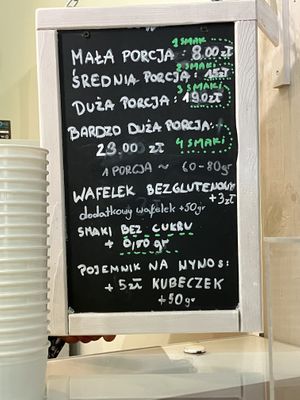 1 SMAK
MAŁA PORCJA : 8.00 zł
2 SMAKI
ŚREDNIA PORCJA : 15 zł
3 SMAKI
DUŻA PORCJA : 19.0 zł
BARDZO DUŻA PORCJA:
23.00 zł 4 SMAKI
1 PORCJA ~ 60-80gr
WAFELEK BEZGLUTENOWY
+3zł
dodatkowy wafelek +50gr
SMAKI BEZ CUKRU
+ 0,50 gr
POJEMNIK NA WYNOS:
+ 5zł KUBECZEK
+50gr